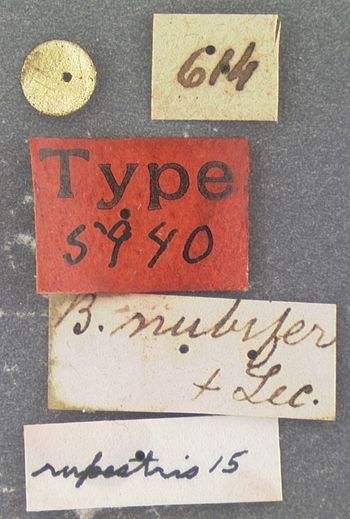 614
Type
5940
B. nubifer
+ Lec.
rupestris 15